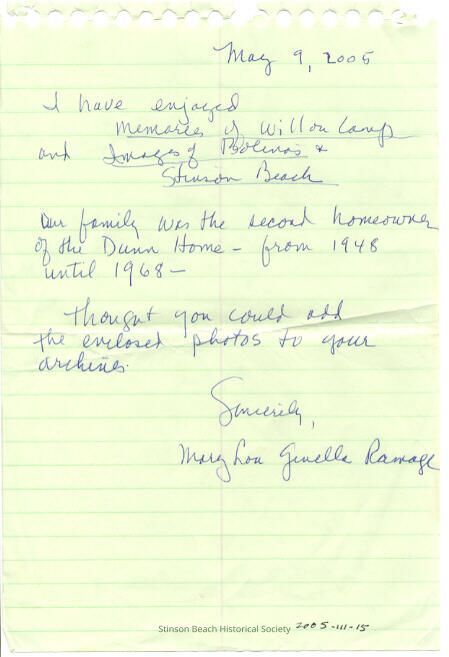 May 9, 2005
I have enjoyed
Memories of Willow Camp
and Images of Bolinas &
Stinson Beach
Our family was the second homeowner
of the Dunn Home – from 1948
until 1968 –
Thought you could add
the enclosed photos to your
archives.
Sincerely,
Mary Lou Ginella Ramage
Stinson Beach Historical Society 2005-111-15